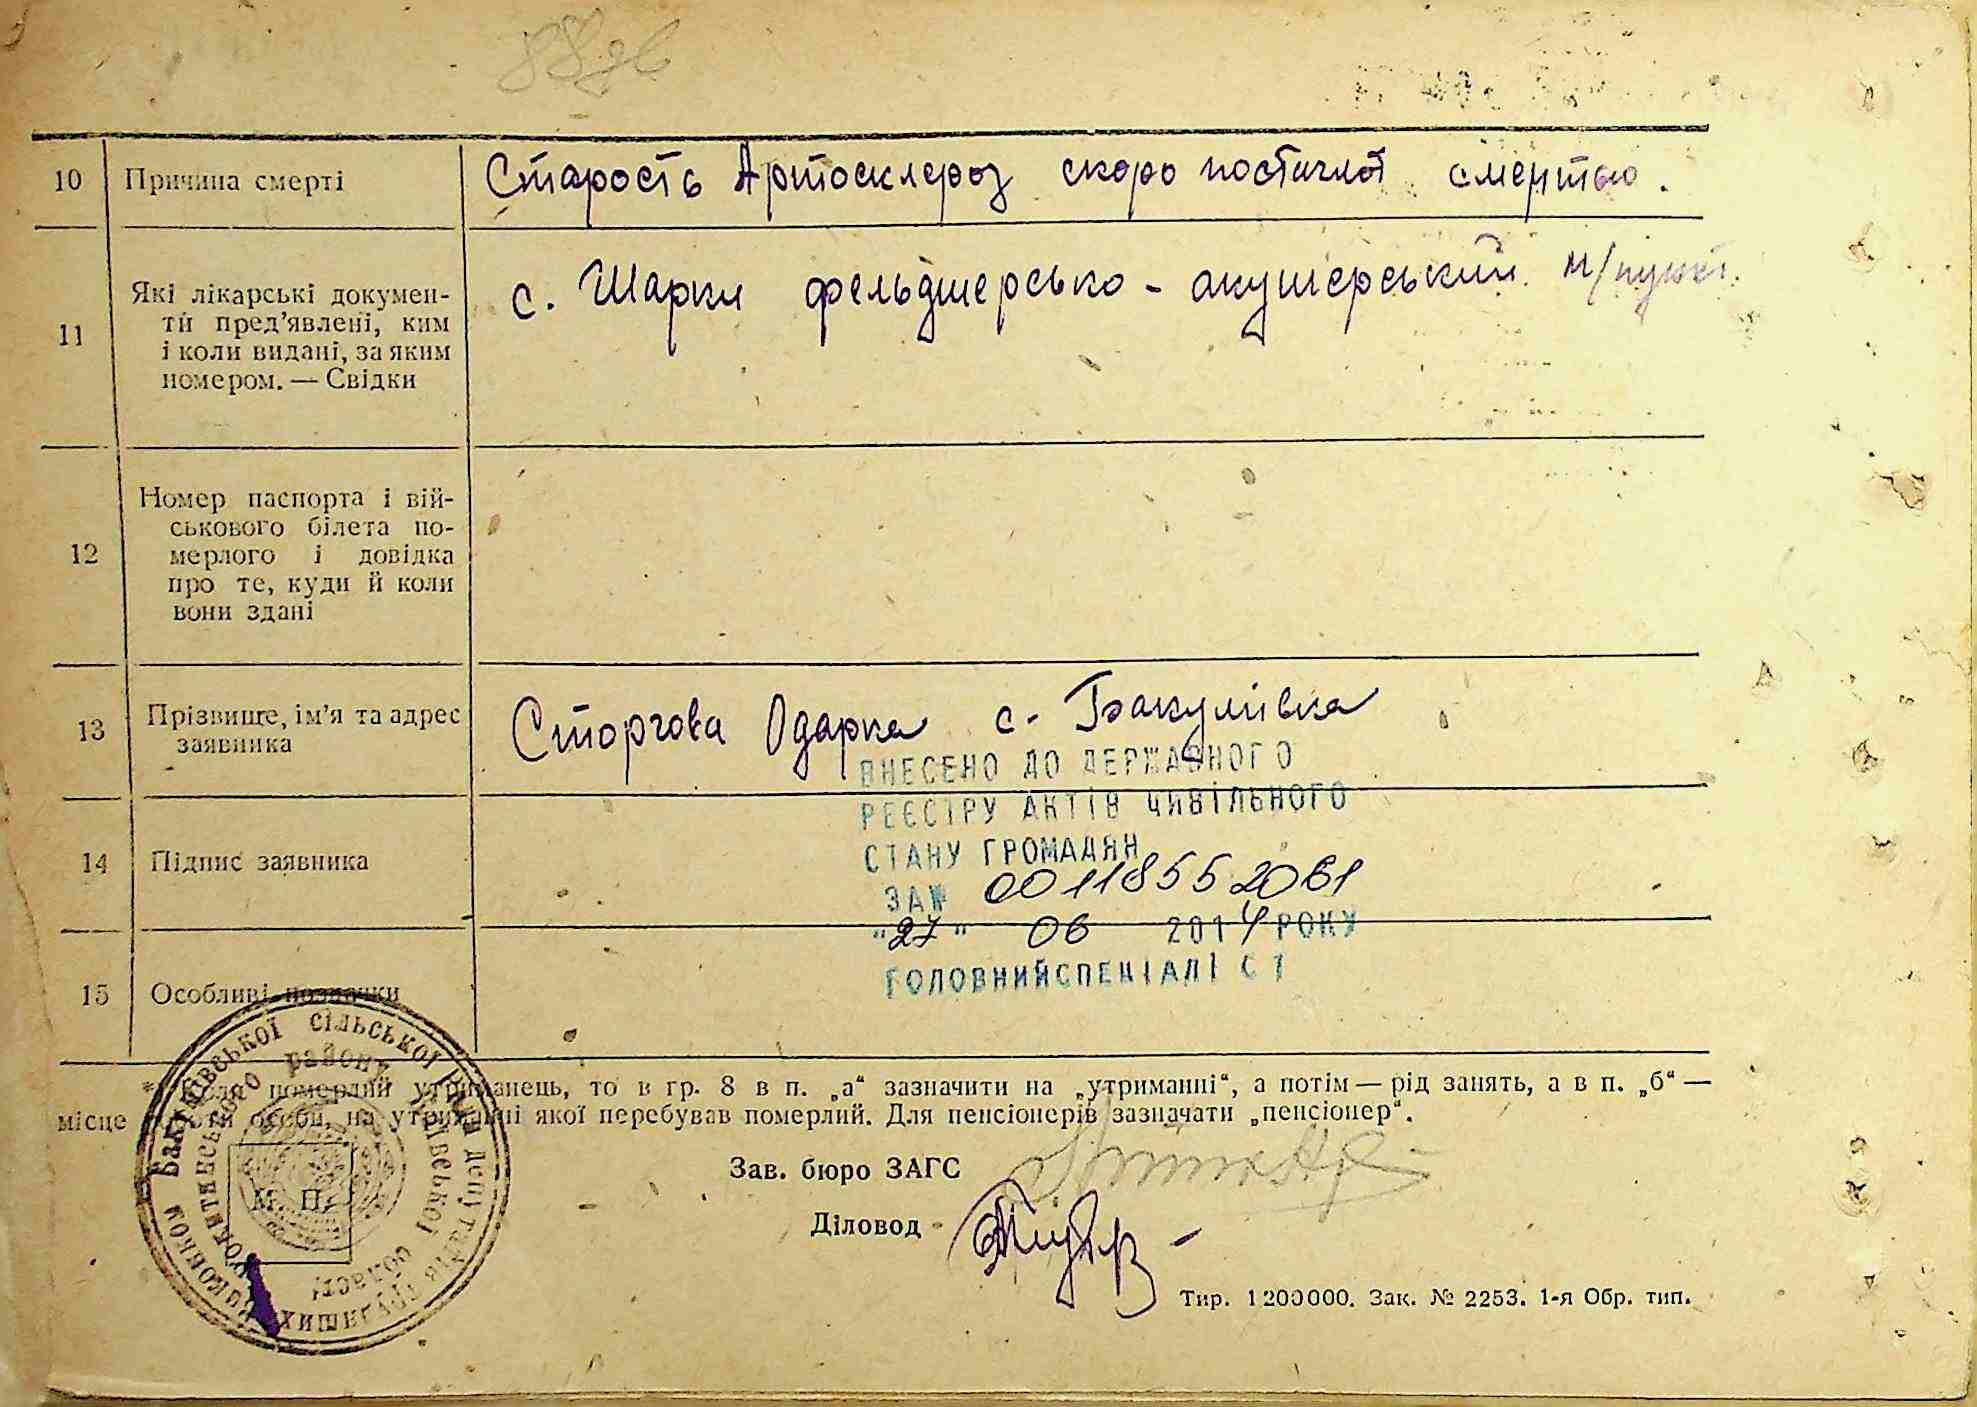 88
10 Причина смерті Старость Артосклероз скоро постиглої смертью.
11 Які лікарські докумен-
ти пред’явлені, ким
і коли видані, за яким
номером. — Свідки
с. Шарки фельдшерсько - акушерський п/пункт.
12 Номер паспорта і вій-
ськового білета по-
мерлого і довідка
про те, куди й коли
вони здані
13 Прізвище, ім’я та адрес
заявника
Сторгова Одарка с. Бакумівка
ВНЕСЕНО ДО ДЕРЖАВНОГО
РЕЄСТРУ АКТІВ ЦИВІЛЬНОГО
СТАНУ ГРОМАДЯН
ЗА № 00118552061
"27" 06 2014 РОКУ
ГОЛОВНИЙ СПЕЦІАЛІСТ
14 Підпис заявника
15 Особливі позначки
* Коли померлий утриманець, то в гр. 8 в п. „а“ зазначити на „утриманні“, а потім — рід занять, а в п. „б“ —
місце роботи особи, на утриманні якої перебував померлий. Для пенсіонерів зазначати „пенсіонер“.
Зав. бюро ЗАГС
Діловод
М. П.
Виконком Бакумівської сільської Ради депутатів трудящих
Рокитнянського району Київської області
Тир. 1200000. Зак. № 2253. 1-я Обр. тип.